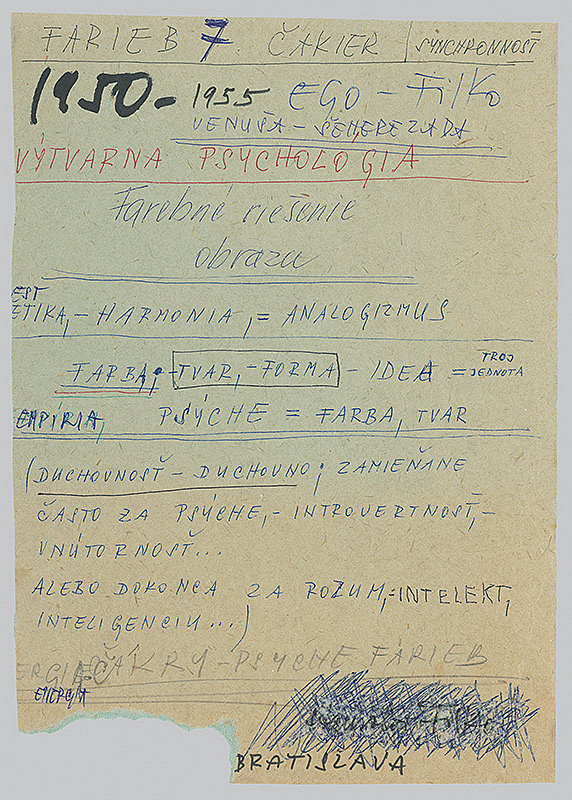 FARIEB 7 ČAKIER | SYNCHRONNOSŤ
1950 - 1955 EGO - FILKO
VENUŠA - ŠEHEREZADA
VÝTVARNA PSYCHOLOGIA
Farebné riešenie
obrazu
EST
ETIKA, - HARMONIA, = ANALOGIZMUS
FARBA, - TVAR, - FORMA - IDEA = TROJ
JEDNOTA
EMPÍRIA, PSÝCHE = FARBA, TVAR
(DUCHOVNOSŤ - DUCHOVNO; ZAMIEŇANE
ČASTO ZA PSÝCHE, - INTROVERTNOSŤ, -
VNÚTORNOSŤ...
ALEBO DOKONCA ZA ROZUM, = INTELEKT,
INTELIGENCIU...)
ERGIA ČAKRY - PSYCHE FARIEB
ENERGIA
BRATISLAVA